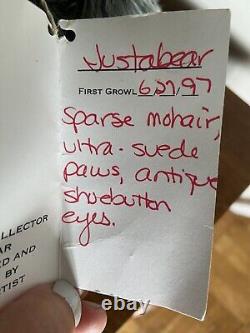 Justabear
FIRST GROWL 6/27/97
Sparse mohair,
ultra-suede
paws, antique
shoebutton
eyes.
LLECTOR
AR
ED AND
BY
TIST